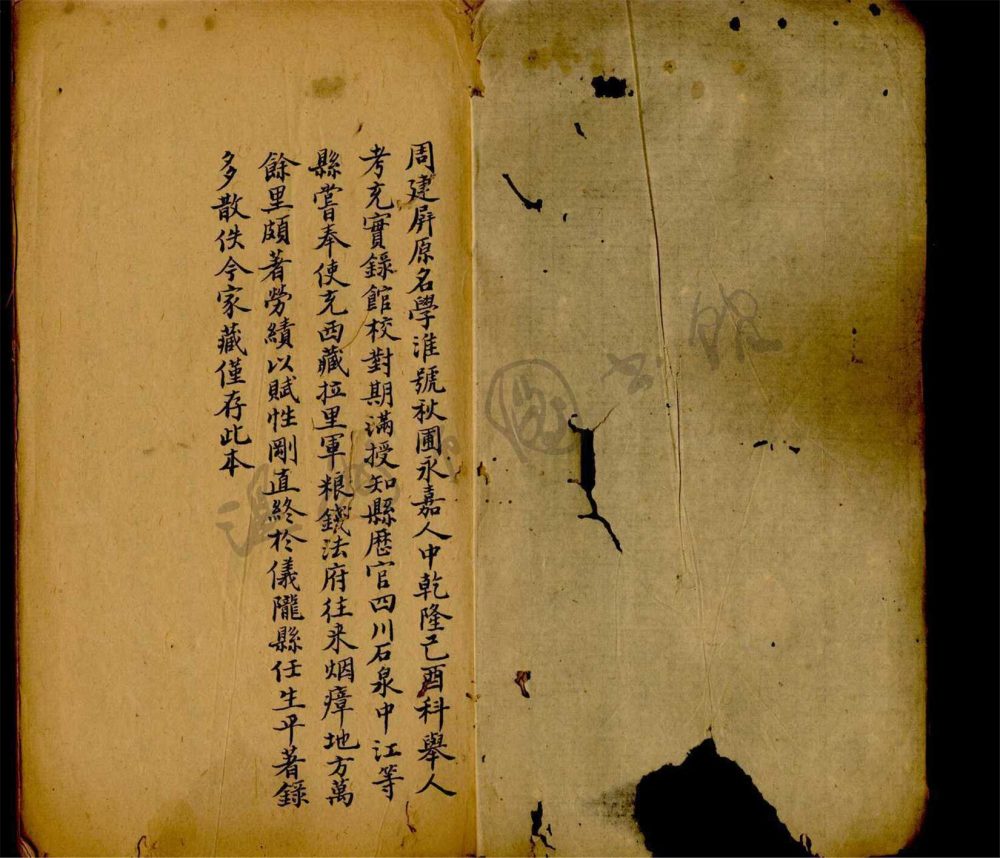 周建屏原名學淮號秋圃永嘉人中乾隆己酉科舉人
考充實錄館校對期滿授知縣歷官四川石泉中江等
縣嘗奉使充西藏拉里軍粮錢法府往来烟瘴地方萬
餘里頗著勞績以賦性剛直終於儀隴縣任生平著錄
多散佚今家藏僅存此本